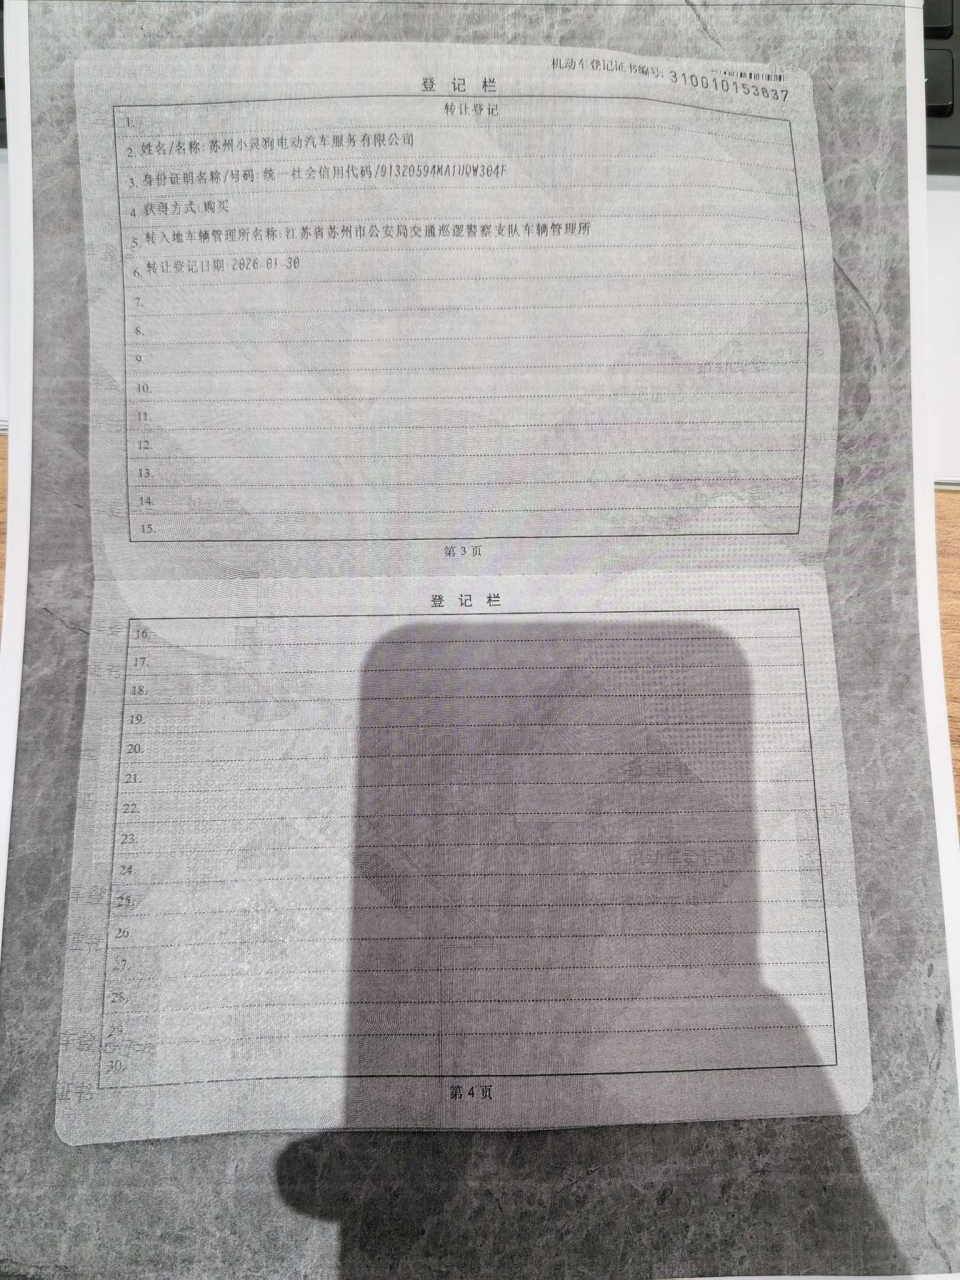 机动车登记证书编号: 310010153837
登 记 栏
1. 转让登记
2. 姓名/名称: 苏州小灵狗电动汽车服务有限公司
3. 身份证明名称/号码: 统一社会信用代码/91320594MA1UQW304F
4. 获得方式: 购买
5. 转入地车辆管理所名称: 江苏省苏州市公安局交通巡逻警察支队车辆管理所
6. 转让登记日期: 2026-01-30
7.
8.
9.
10.
11.
12.
13.
14.
15.
第 3 页
登 记 栏
16.
17.
18.
19.
20.
21.
22.
23.
24.
25.
26.
27.
28.
29.
30.
第 4 页